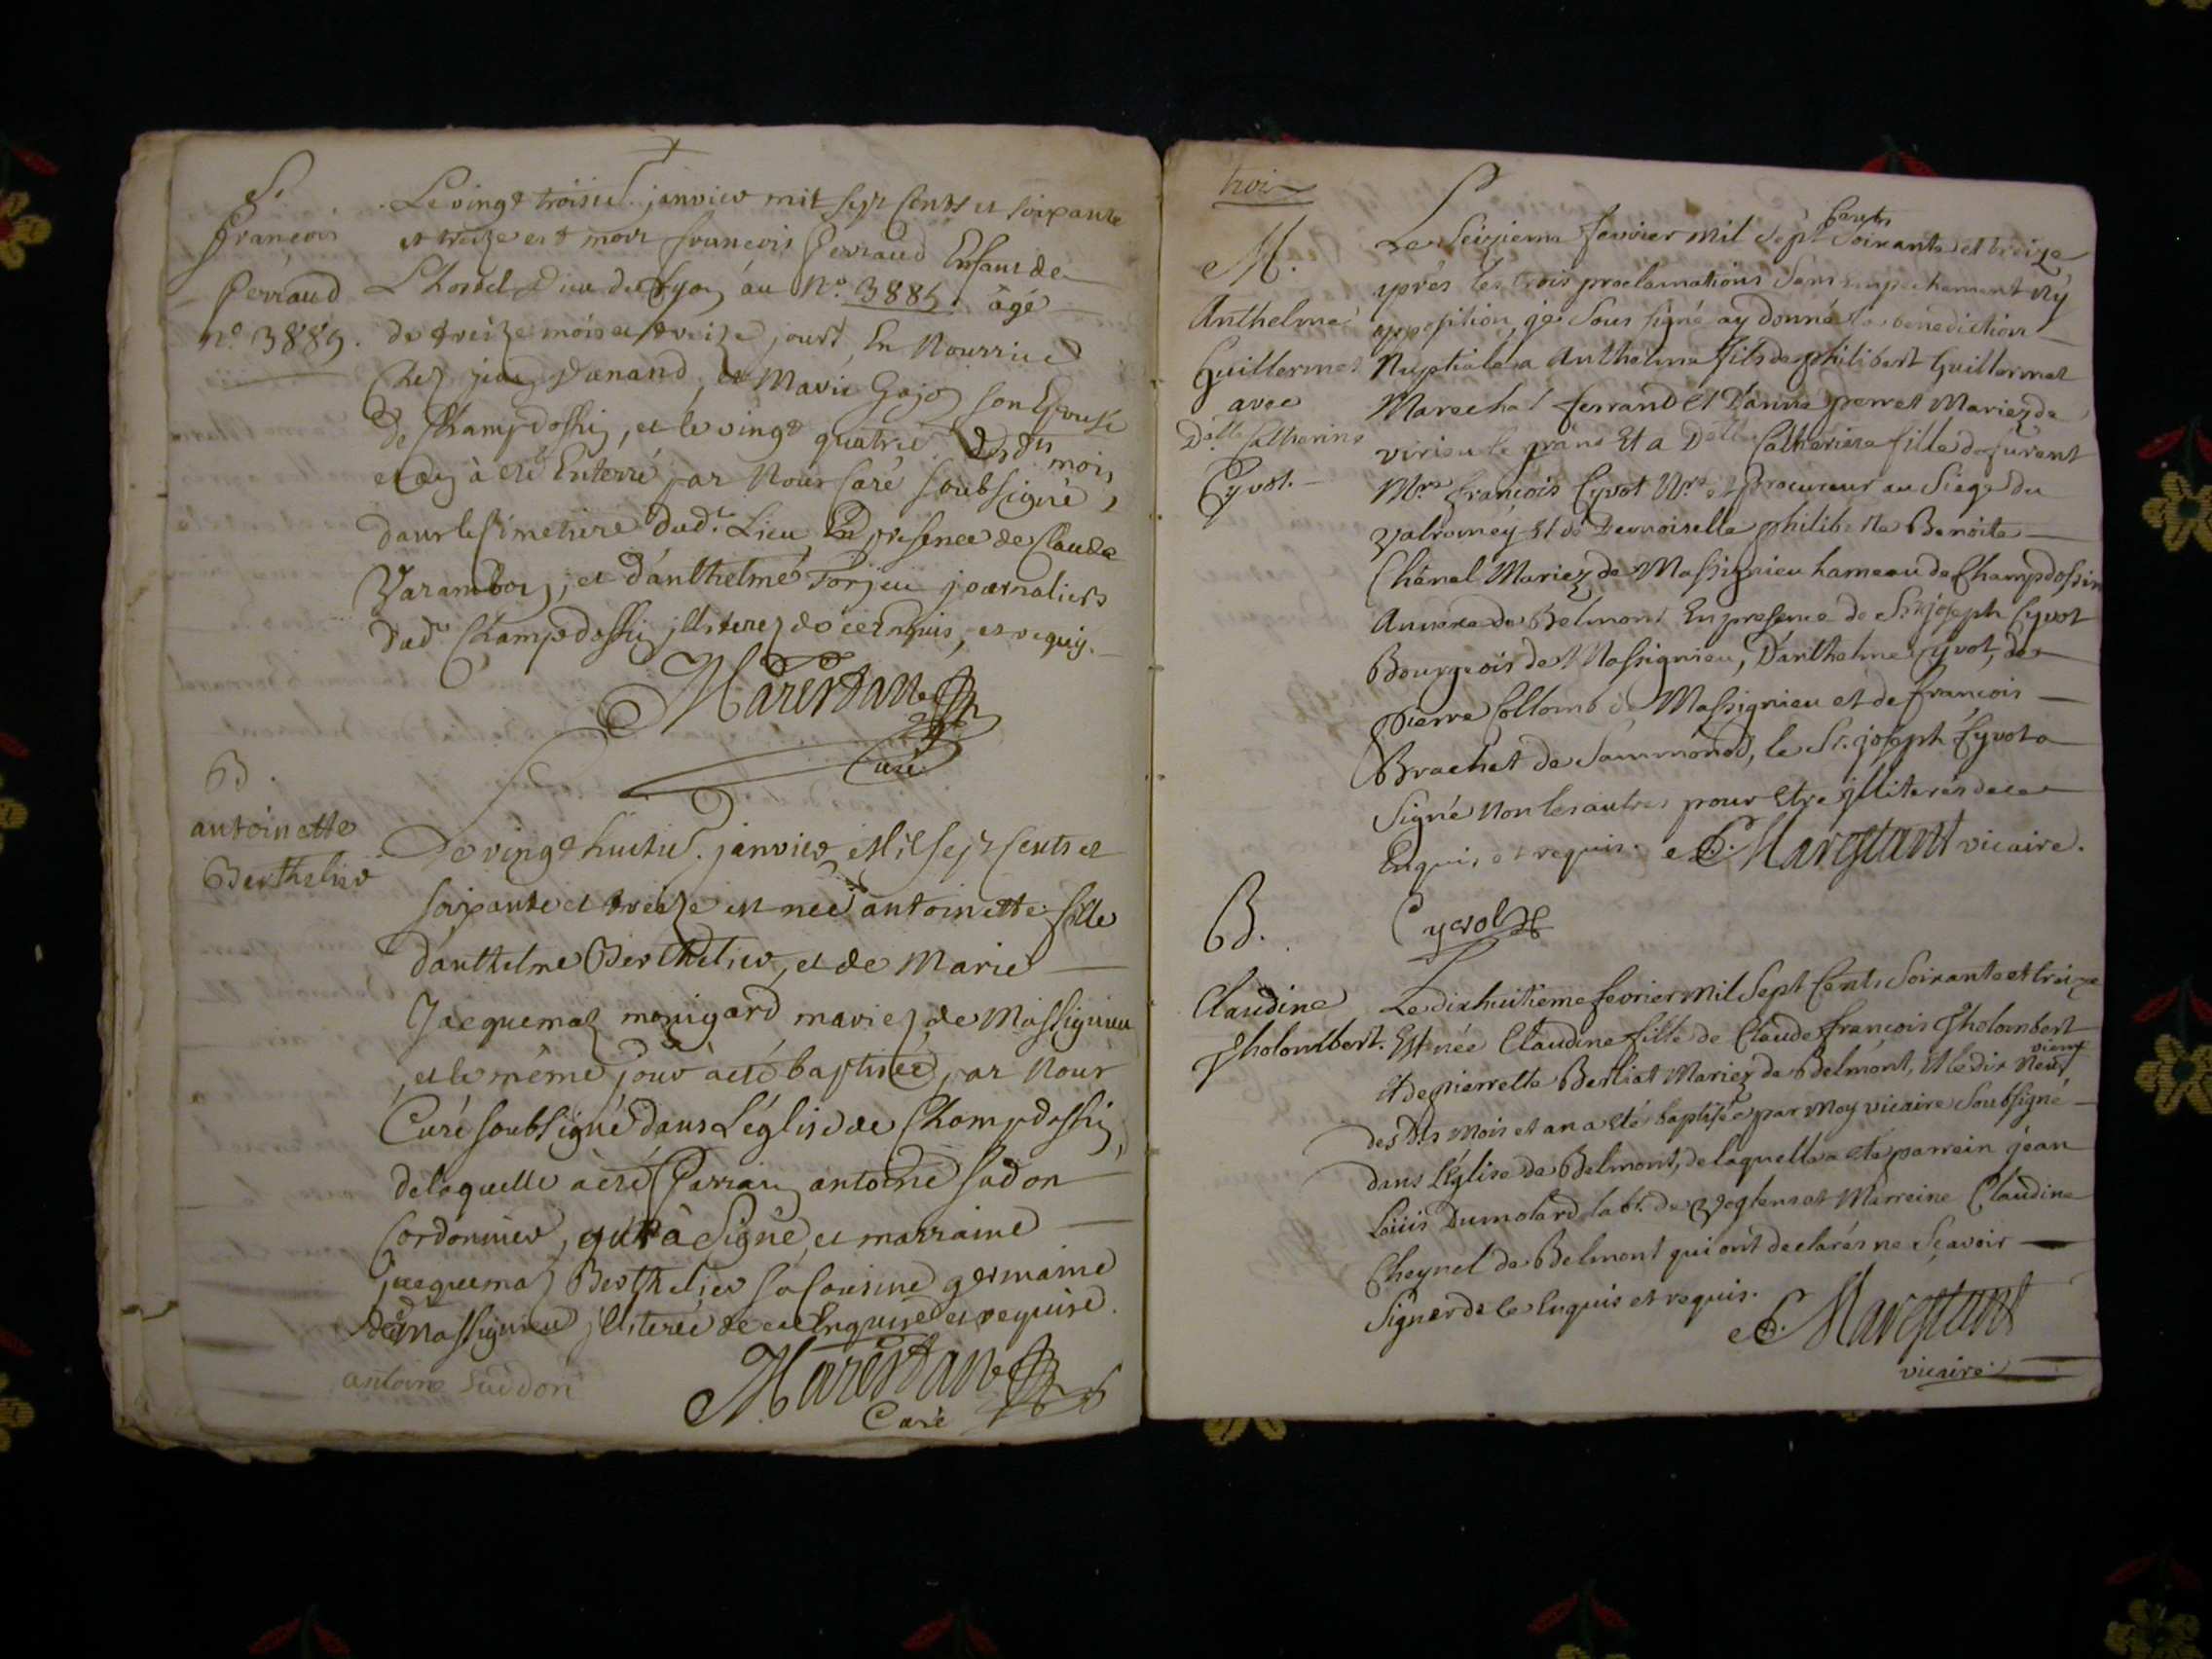 S.
françois
perraud
n.º 3889.
Le vingt troisie. janvier mil sept cents et soixante
et treize est mort françois perraud Enfant de
L'hostel Dieu de Lyon au Nº. 3885. âgé
de treize mois et treize jours, En Nourrice
Chez jean Danand, et Marie Gajoz son Epouse
de Champdossin, et le vingt quatrie. desdts mois
et an à été Enterré par Nous Curé soubsigné,
dans le simetiere dud.t Lieu En presence de Claude
Varambon, et d'anthelme Torjeu journaliers
dud.t Champdossin jlliterez de ce Enquis, et requis.
Marestan
Curé
B.
antoinette
Berthelier
Le vingt huitie. janvier Mil sept cents et
soixante et treize est née antoinette fille
d'anthelme Berthelier, et de Marie
Jacquemaz monigard mariez de Massignieu
, et le même jour à eté baptisée, par Nous
Curé soubsigné dans L'église de Champdossin,
delaquelle à été Parrain antoine sadon
Cordonnier, qui à Signé, et marraine
jacquemaz Berthelier sa Cousine germaine
de Massignieu jlliterée de ce Enquise et requise.
antoine suddon
Marestan
Curé
troi
M.
Anthelme
Guillermet
avec
D.elle Catherine
Cyvot.
Le Seizieme fevrier mil Sept Cents Soixante et treize
après les trois proclamations Sans empechement Ny
opposition, je Sous signé ay donné la benediction
Nuptiale a Anthelme fils de philibert Guillermet
Marechal ferrand Et D'anne perret Mariez de
virieu le grand Et a D.elle Catherine fille de furent
M.re françois Cyvot N.re et Procureur au Siege du
valromey Et de Demoiselle philiberte Benoite
Chênel Mariez de Massignieu hameau de Champdossin
Annexe de Belmont En presence de S.r joseph Cyvot
Bourgeois de Massignieu, D'anthelme Cyvot, de
Pierre Collomb de Massignieu et de françois
Brachet de Sammonod, le S.r joseph Cyvot a
Signé Non les autres pour Etre jlliterés de ce
Enquis et requis. Marestant vicaire.
Cyvot
B.
Claudine
Tholombert.
Le dix huitieme fevrier Mil Sept Cents Soixante et treize
Est née Claudine fille de Claude françois Tholombert
Et de pierrette Berliat Mariez de Belmont, Et le dix Neuf vieme
des dts Mois et an a eté baptisée par Moy vicaire Soubsigné
dans l'Eglise de Belmont, de laquelle a eté parrein jean
Loüis Dumolard lab.r de Voglens et Marreine Claudine
Cheynel de Belmont qui ont declarés ne Sçavoir
Signer de ce Enquis et requis.
Marestant
vicaire.